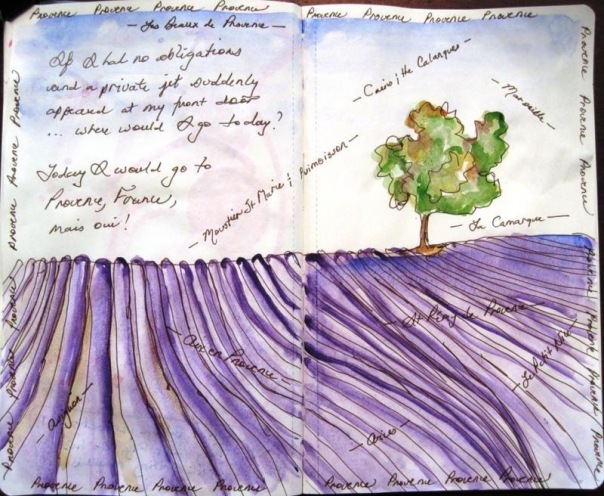 Provence Provence Provence Provence
Provence Provence Provence Provence
– Les Beaux de Provence –
If I had no obligations
and a private jet suddenly
appeared at my front door
... where would I go today?
Today I would go to
Provence, France,
mais oui!
– Cassis & the Calanques –
– Marseille –
– Moustier St Marie & Puimoisson –
– La Camargue –
– St Rémy de Provence –
– Aix en Provence –
– Le Petit
– Avignon –
– Arles –
Provence Provence Provence Provence Provence
Provence Provence Provence Provence Provence
Provence Provence Provence Provence
Provence Provence Provence Provence